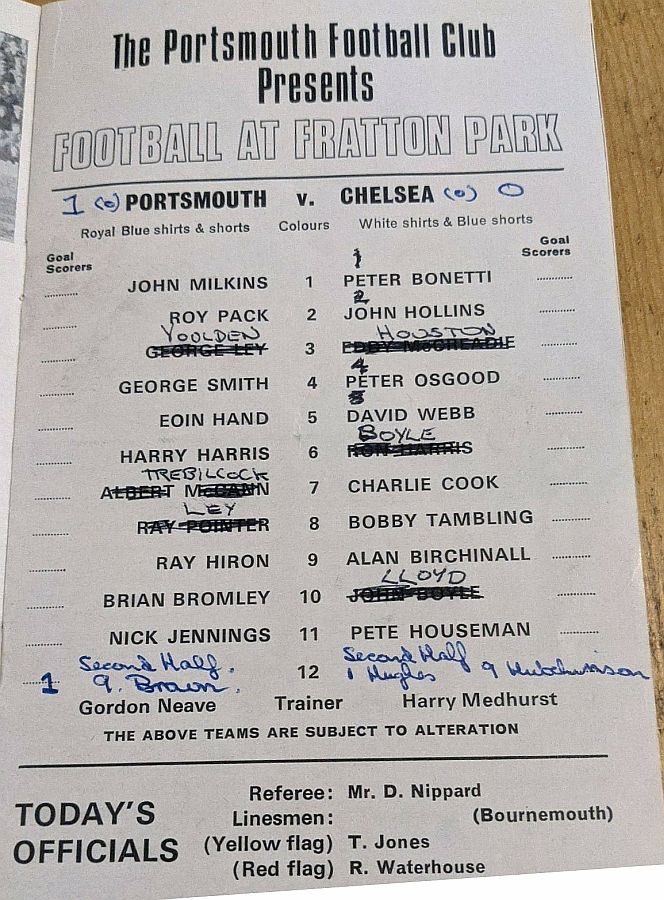 The Portsmouth Football Club
Presents
FOOTBALL AT FRATTON PARK
1 (0) PORTSMOUTH v. CHELSEA (0) 0
Royal Blue shirts & shorts Colours White shirts & Blue shorts
Goal Scorers Goal Scorers
1
JOHN MILKINS 1 PETER BONETTI
2
ROY PACK 2 JOHN HOLLINS
YOULDEN HOUSTON
GEORGE LEY 3 EDDY McCREADIE
4
GEORGE SMITH 4 PETER OSGOOD
5
EOIN HAND 5 DAVID WEBB
BOYLE
HARRY HARRIS 6 RON HARRIS
TREBILCOCK
ALBERT McCANN 7 CHARLIE COOK
LEY
RAY POINTER 8 BOBBY TAMBLING
RAY HIRON 9 ALAN BIRCHINALL
LLOYD
BRIAN BROMLEY 10 JOHN BOYLE
NICK JENNINGS 11 PETE HOUSEMAN
Second Half. Second Half
1 9. Brown. 12 1 Hughes 9 Hutchinson
Gordon Neave Trainer Harry Medhurst
THE ABOVE TEAMS ARE SUBJECT TO ALTERATION
TODAY'S OFFICIALS
Referee: Mr. D. Nippard
Linesmen: (Bournemouth)
(Yellow flag) T. Jones
(Red flag) R. Waterhouse